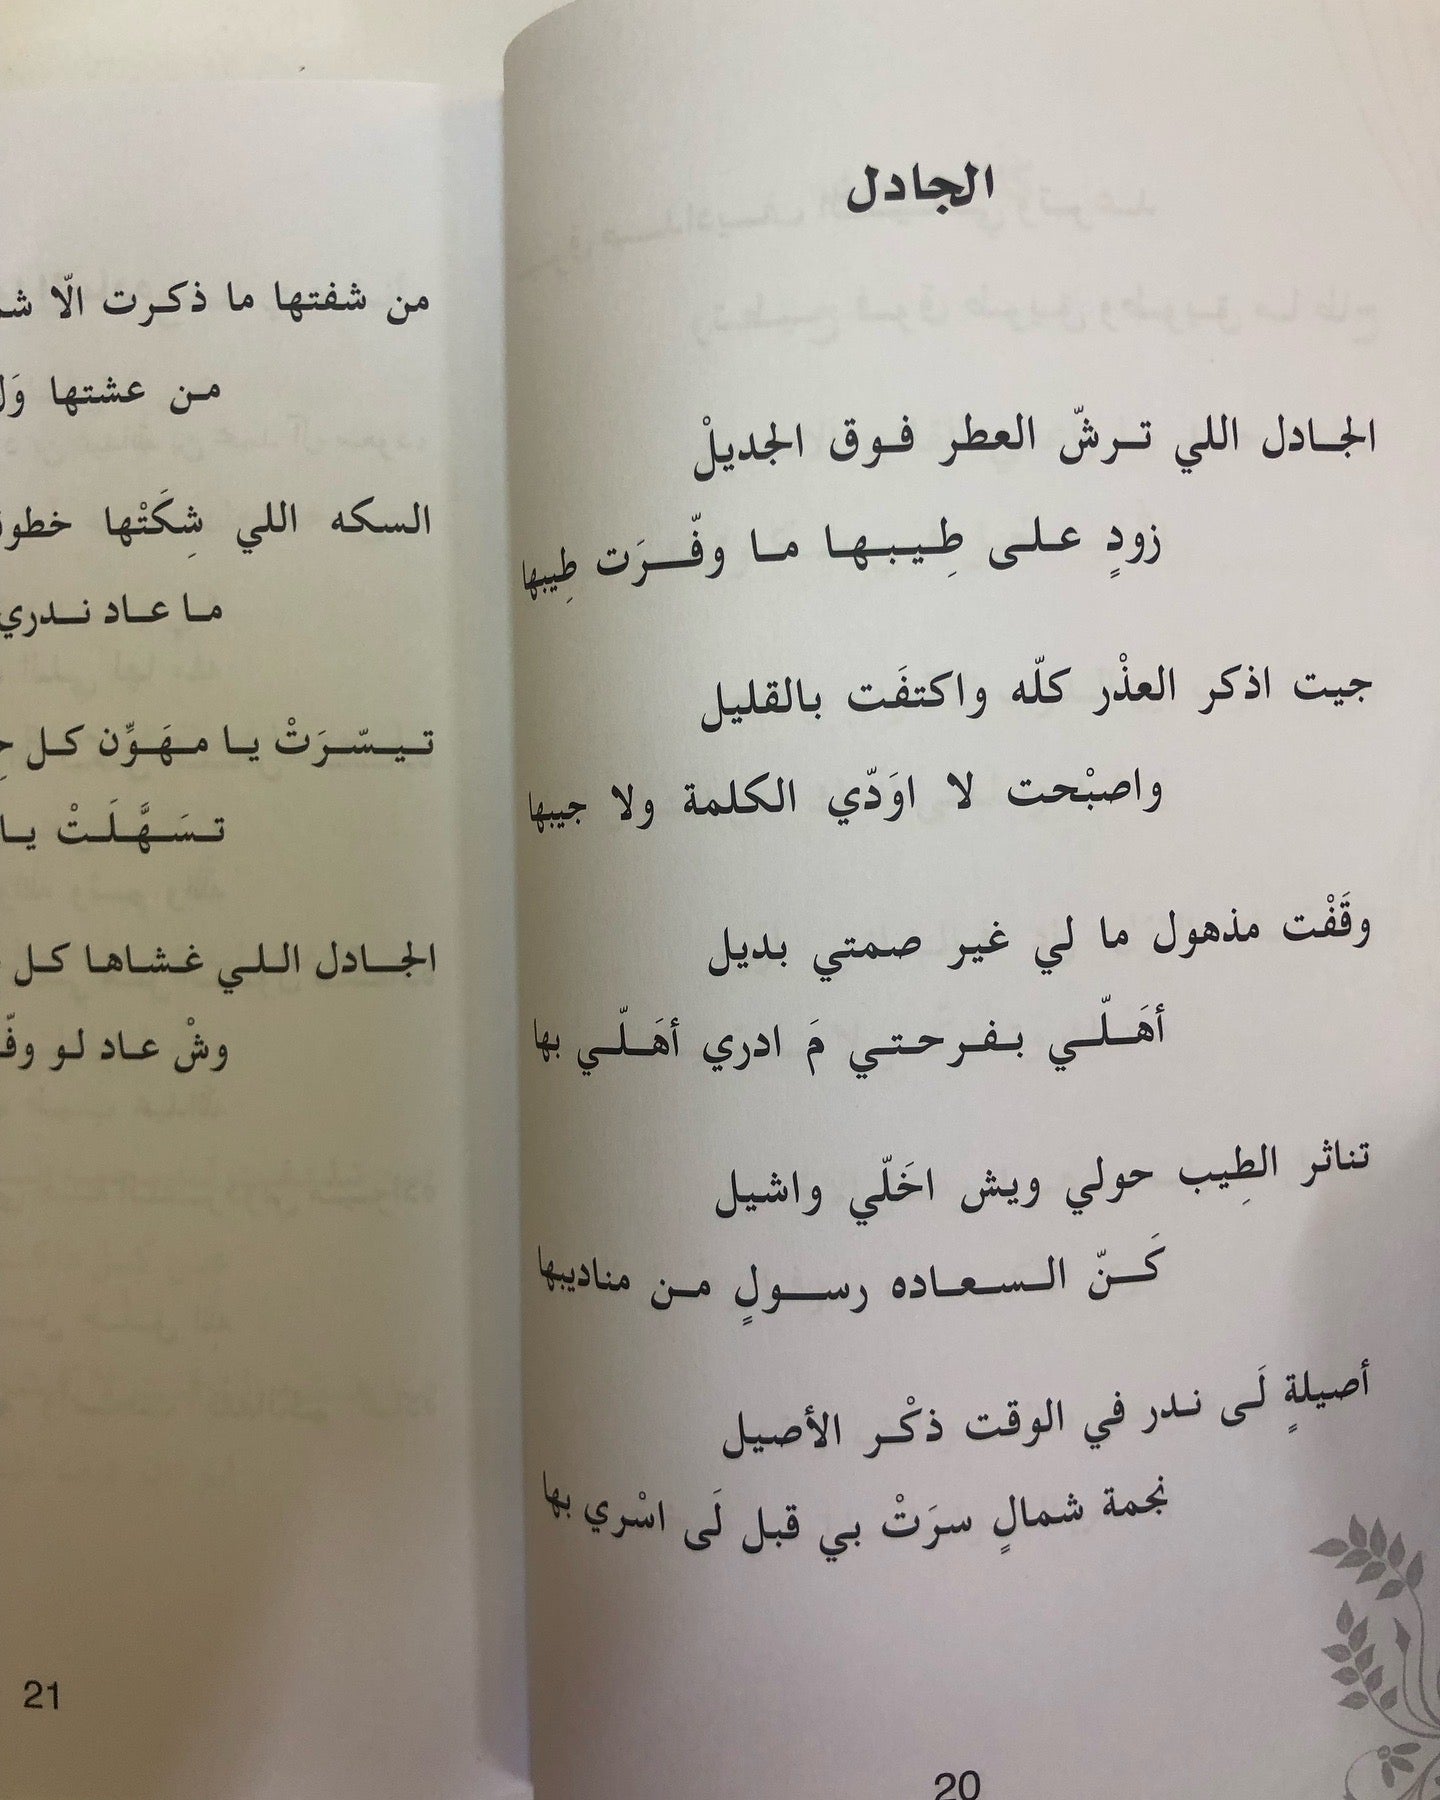 الجادل
الجـادل اللي تـرشّ العطر فـوق الجديلْ
زودٍ عـلـى طِـيـبـهـا مـا وفّـرَت طِيبها
جيت اذكر العذْر كلّه واكتفَت بالقليل
واصبْحت لا اوَدّي الكلمة ولا جيبها
وقَفْت مذهول ما لي غير صمتي بديل
أهَـلّـي بـفـرحـتـي مَ ادري أهَـلّـي بها
تناثر الطِيب حولي ويش اخَلّي واشيل
كَـنّ الـسـعـاده رسـولٍ مـن مناديبها
أصيلةٍ لَـى نـدر في الوقت ذكْـر الأصيل
نجمة شمالٍ سرَتْ بي قبل لَى اسْري بها
20
من شفتها ما ذكـرت الّا
مـن عشتها
السكه اللي شِكَتْها
مـا عـاد نـدري
تـيـسّـرَتْ يـا مـهَـوِّن كـل
تـسَـهَّـلَـتْ يـا
الجـادل الـلـي غـشـاهـا كـل
وشْ عـاد لـو
21